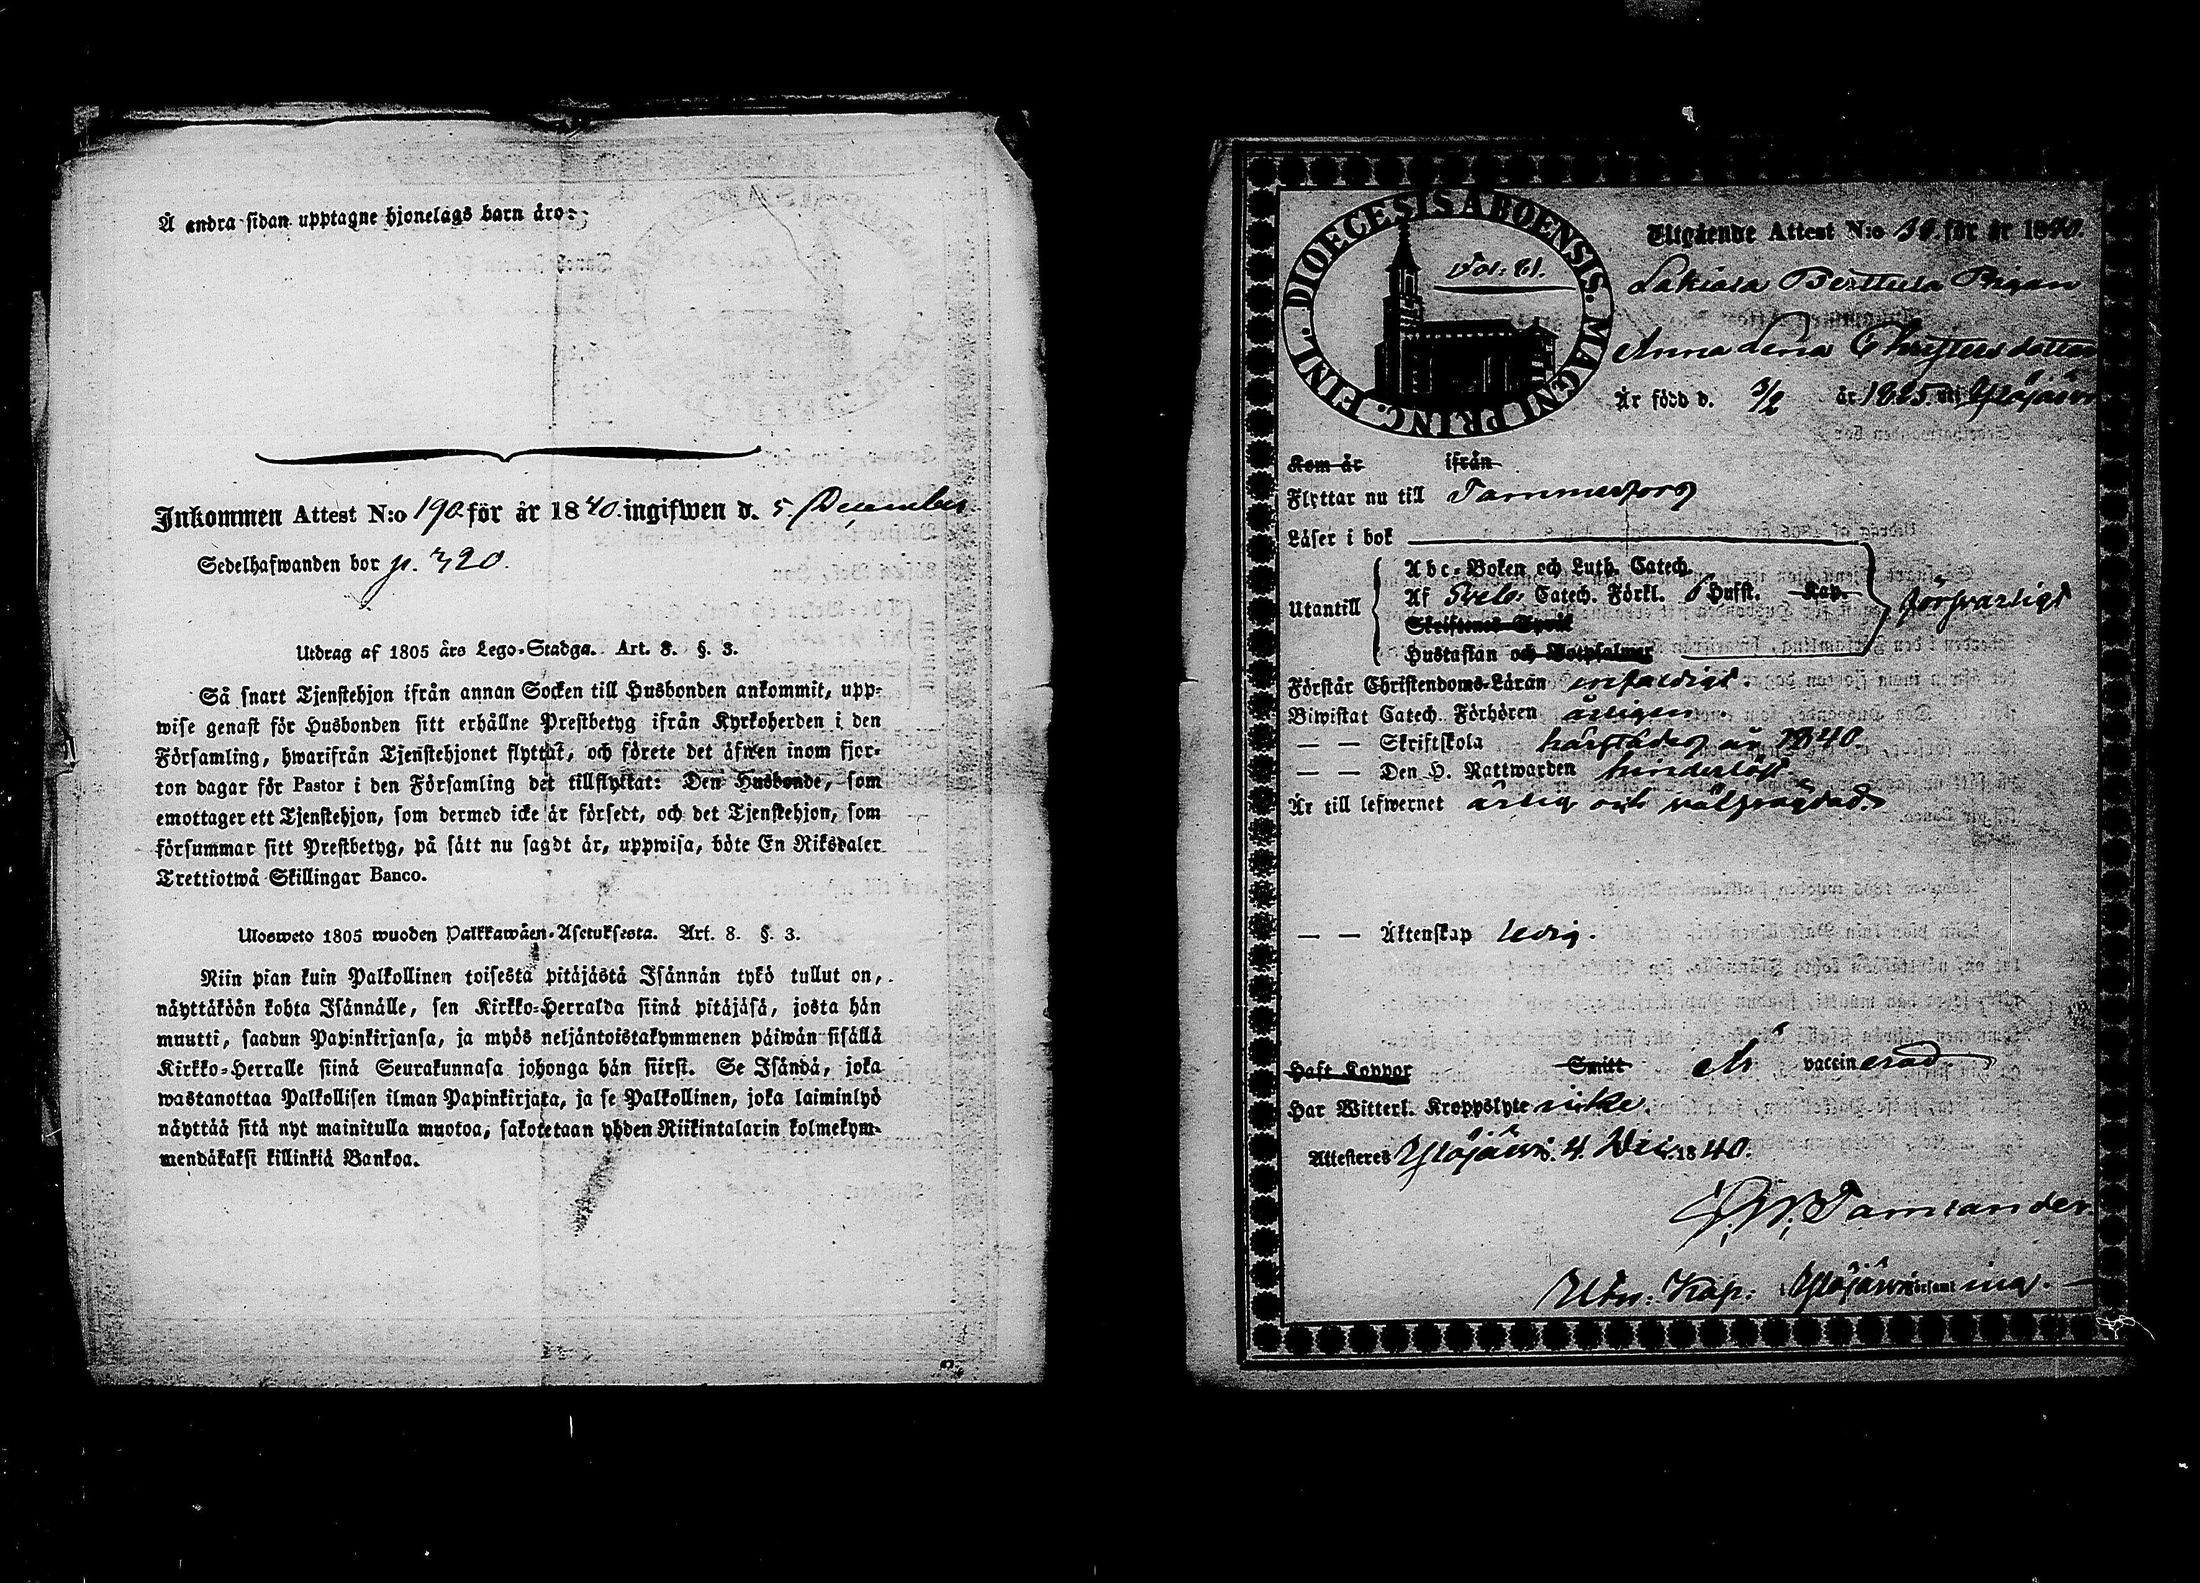 Å andra sidan upptagne hjonelags barn äro:
Inkommen Attest N:o 190 för år 1840 ingifwen d. 5. December
Sedelhafwanden bor p. 320.
Utdrag af 1805 års Lego-Stadga. Art. 8. §. 3.
Så snart Tjenstehjon ifrån annan Socken till Husbonden ankommit, upp-
wise genast för Husbonden sitt erhållne Prestbetyg ifrån Kyrkoherden i den
Församling, hwarifrån Tjenstehjonet flyttat, och förete det äfwen inom fjor-
ton dagar för Pastor i den Församling det tillflyttat: Den Husbonde, som
emottager ett Tjenstehjon, som dermed icke är försedt, och det Tjenstehjon, som
försummar sitt Prestbetyg, på sätt nu sagdt är, uppwisa, böte En Riksdaler
Trettiotwå Skillingar Banco.
Ulosweto 1805 wuoden Palkkawäen-Asetuksesta. Art. 8. §. 3.
Niin pian kuin Palkollinen toisesta pitäjästä Isännän tykö tullut on,
näyttäköön kohta Isännälle, sen Kirkko-Herralda siinä pitäjäsä, josta hän
muutti, saadun Papinkirjansa, ja myös neljäntoistakymmenen päiwän sisällä
Kirkko-Herralle siinä Seurakunnasa johonga hän siirsi. Se Isändä, joka
wastanottaa Palkollisen ilman Papinkirjata, ja se Palkollinen, joka laiminlyö
näyttää sitä nyt mainitulla muotoa, sakotetaan yhden Riikintalarin kolmekym-
mendäkaksi killinkiä Bankoa.
FINL. DIOECESIS ABOENSIS. MAGNI PRINC.
Fol: 81.
Utgående Attest N:o 39. för år 1840.
Lakiala Berttula Pigan
Anna Lena Christersdotter
Är född d. 3/2 år 1825. i Ylöjärvi
Kom år ifrån
Flyttar nu till Tammerfors
Läser i bok
Utantill
Abc-Boken och Luth. Catech.
Af Svebi Catech. Förkl. 6 Hufst. Kap.
Skriftenes Språk
Hustaflan och Botpsalmer
försvarligt
Förstår Christendoms-Läran enfaldigt.
Biwistat Catech. Förhören årligen
— — Skriftskola härstädes år 1840.
— — Den H. Nattwarden hinderlöst.
Är till lefwernet ärlig och välfrägdad.
— — Äktenskap ledig.
Haft Koppor Smitt Är vaccinerad
Har Witterl. Kroppslyte icke.
Attesteras Ylöjärvi d. 4. Dec. 1840.
Tamlander
Utn: Kap: i Ylöjärvi Församling.